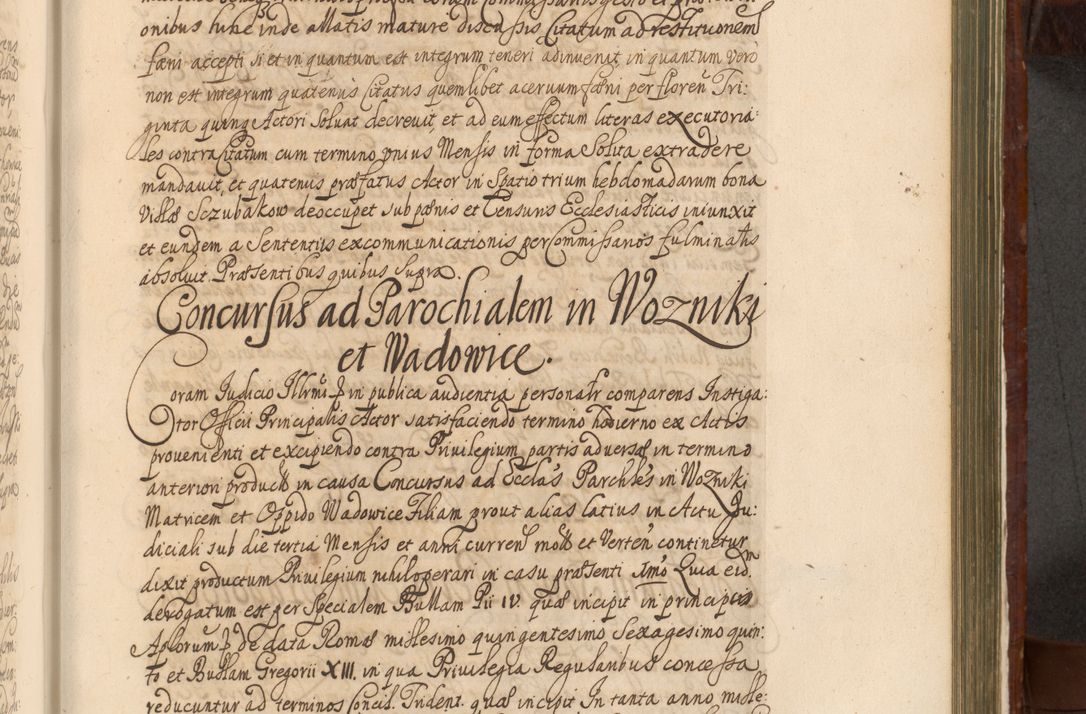 onibus hinc inde allatis mature discussis Citatum ad restitutionem
fæni accepti si et in quantum est integrum teneri adinvenit in quantum vero
non est integrum quatenus Citatus quemlibet acervum fæni per floren Tri:
ginta quinqe Actori solvat decrevit et ad eum effectum literas executoria:
les contra Citatum cum termino unius Mensis in forma solita extradere
mandavit, et quatenus præfatus Actor in spatio trium hebdomadarum bona
Villæ Sczubakow deoccupet sub pœnis et Censuris Ecclesiasticis iniunxit
et eundem a sententiis excommunicationis per Commissarios fulminatis
absolvit. Præsentibus quibus supra.
Concursus ad Parochialem in Wozniki
et Wadowice.
Coram Judicio Illrmi in publica audientia personalr comparens Instiga:
tor Officii Principalis Actor satisfaciendo termino hodierno ex Actis
provenienti et excipiendo contra Privilegium partis adversæ in termino
anteriori product in causa Concursus ad Ecclas Parchles in Wozniki
Matricem et Oppido Wadowice Filiam prout alias latius in Actu Ju:
diciali sub die tertia Mensis et anni curren mott et Verten continetur
dixit productum Privilegium nihil operari in casu præsenti Imo Quia eidm
derogatum est per specialem Bullam Pii IV. quæ incipit in principis
Aplorum de data Romæ millesimo quingentesimo sexagesimo quin:
to et Bullam Gregorii XIII. in qua Privilegia Regularibus concessa
reducuntur ad terminos Concil. Trident. quæ incipit In tanta anno mille: